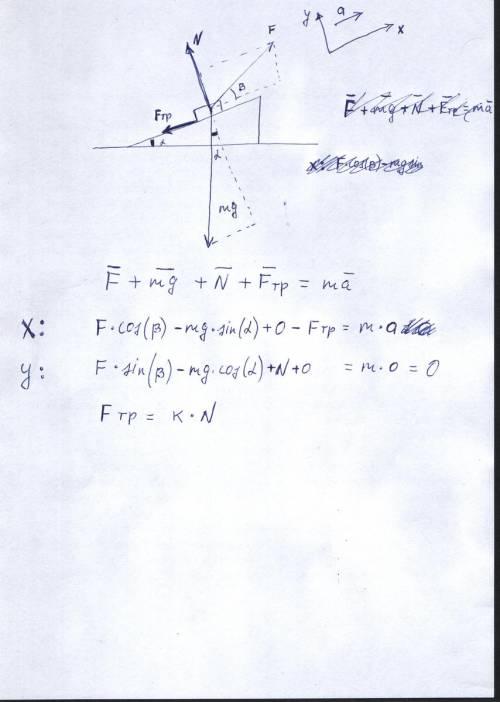 y a x
N F
β
Fтр
α
α
mg
F̄ + m̄g + N̄ + F̄тр = mā
F̄ + m̄g + N̄ + F̄тр = mā
X: F·cos(β) − mg·sin(α) + 0 − Fтр = m·a
y: F·sin(β) − mg·cos(α) + N + 0 = m·0 = 0
Fтр = к·N